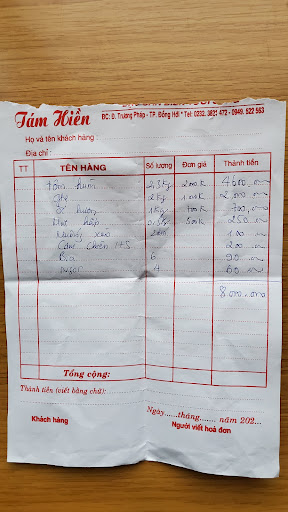 Tám Hiền
ĐC: Đ. Trương Pháp - TP. Đồng Hới * Tel: 0232. 3821 472 - 0949. 522 563
Họ và tên khách hàng:
Địa chỉ:
TT TÊN HÀNG Số lượng Đơn giá Thành tiền
Tôm hùm 2,3kg 200k
Ghẹ 2kg 2.000.000
Ốc hương 1kg 700k 700.000
Mực hấp 0,5kg 500k 250.000
xào 100.000
Cơm chiên HS 200.000
Bia 6 90.000
4 60.000
8.000.000
Tổng cộng:
Thành tiền (viết bằng chữ):
Ngày.....tháng....... năm 202...
Khách hàng Người viết hoá đơn